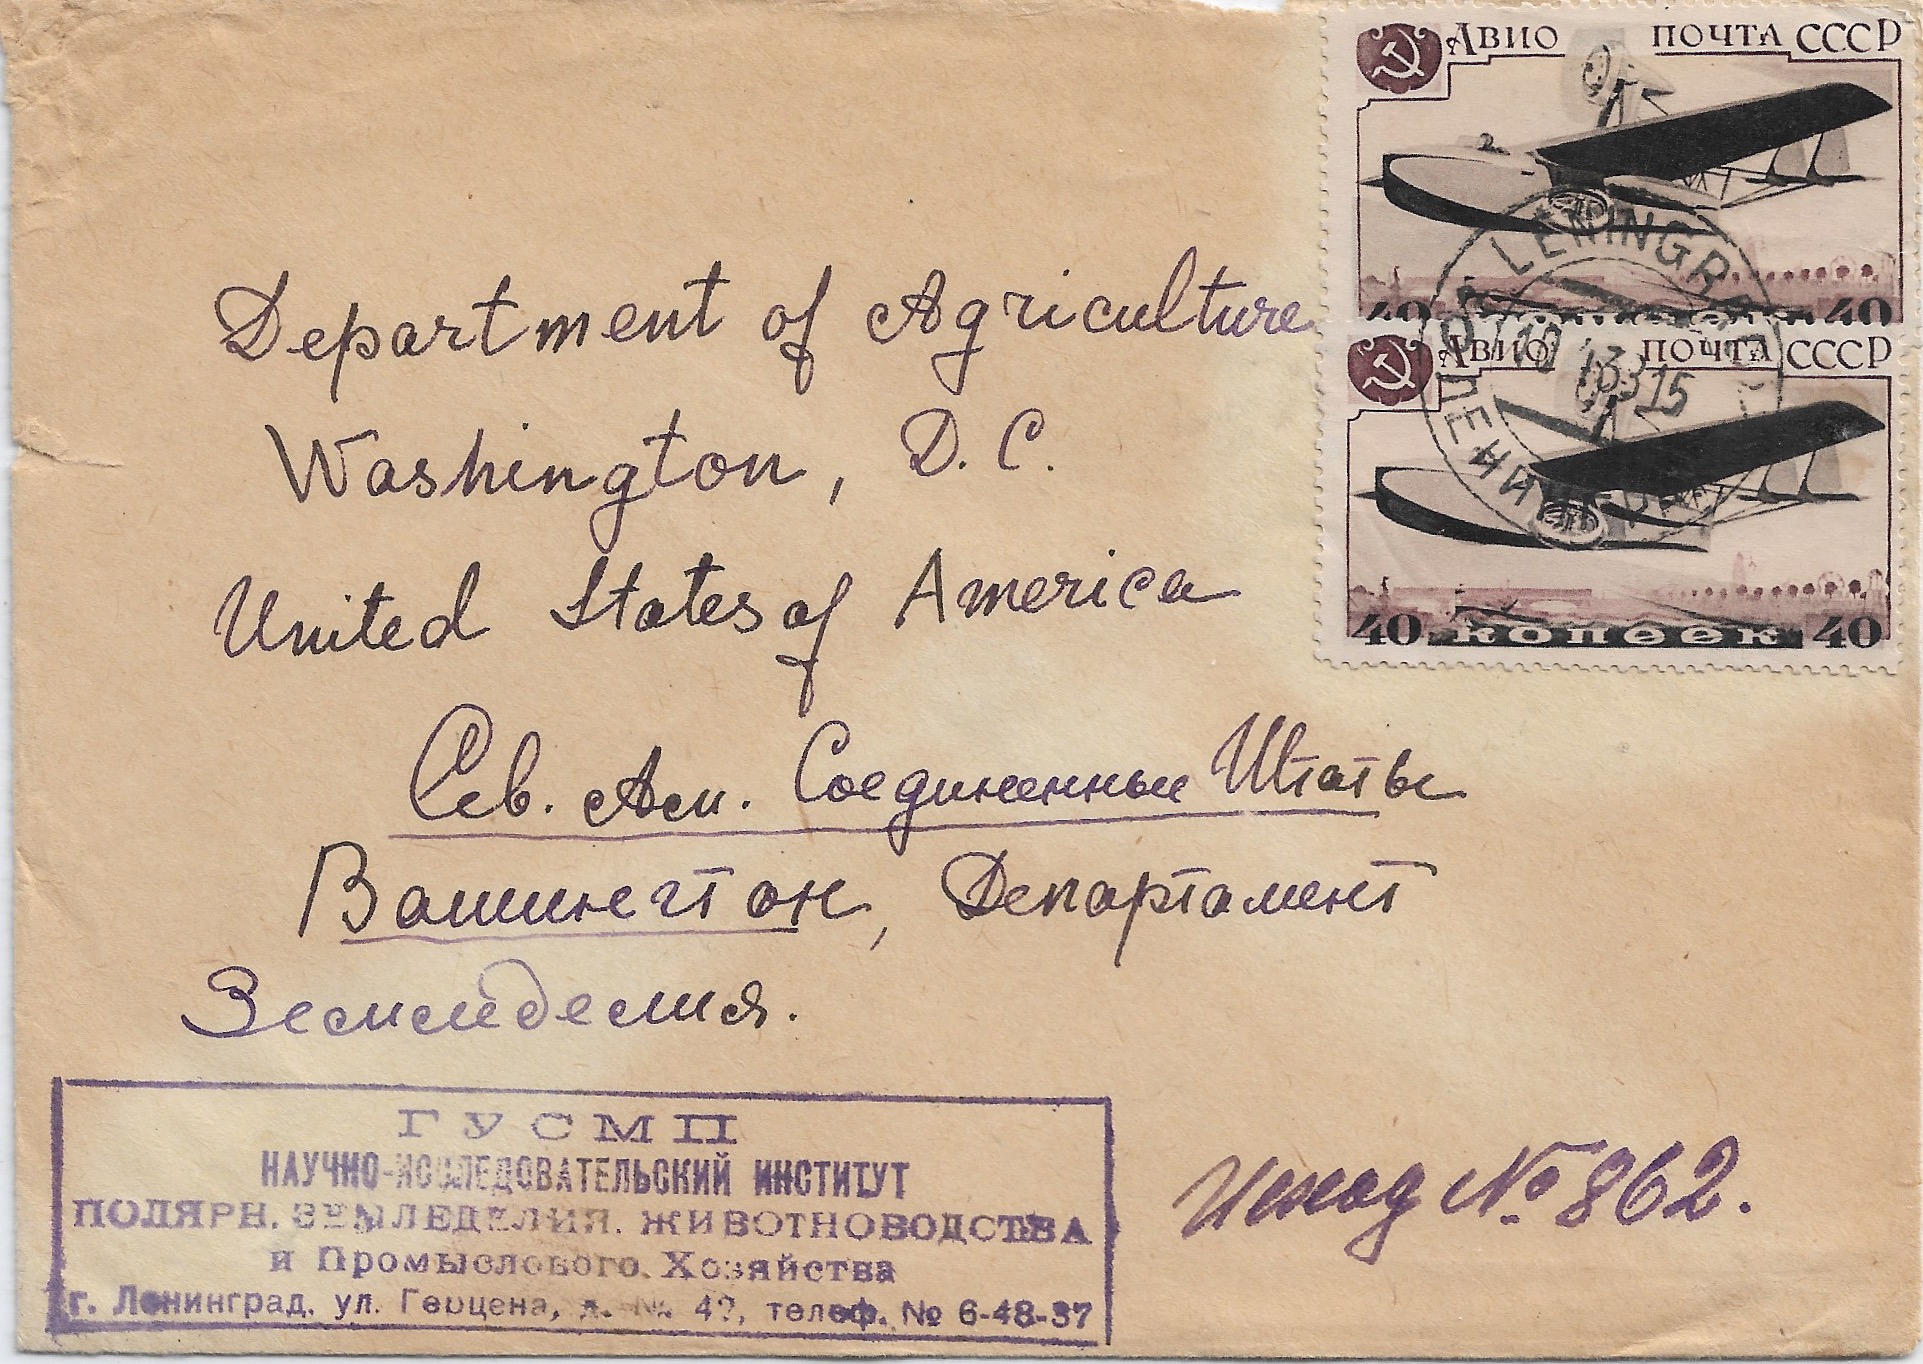 АВИО ПОЧТА СССР
40 40
АВИО ПОЧТА СССР
40 КОПЕЕК 40
LENINGRAD
ЛЕНИНГРАД
Department of Agriculture
Washington, D. C.
United States of America
Сев. Ам. Соединенные Штаты
Вашингтон, Департамент
Земледелия.
ГУСМП
НАУЧНО-ИССЛЕДОВАТЕЛЬСКИЙ ИНСТИТУТ
ПОЛЯРН. ЗЕМЛЕДЕЛИЯ. ЖИВОТНОВОДСТВА
и Промыслового. Хозяйства
г. Ленинград, ул. Герцена, д. № телеф. № 6-48-37
Исход № 862.